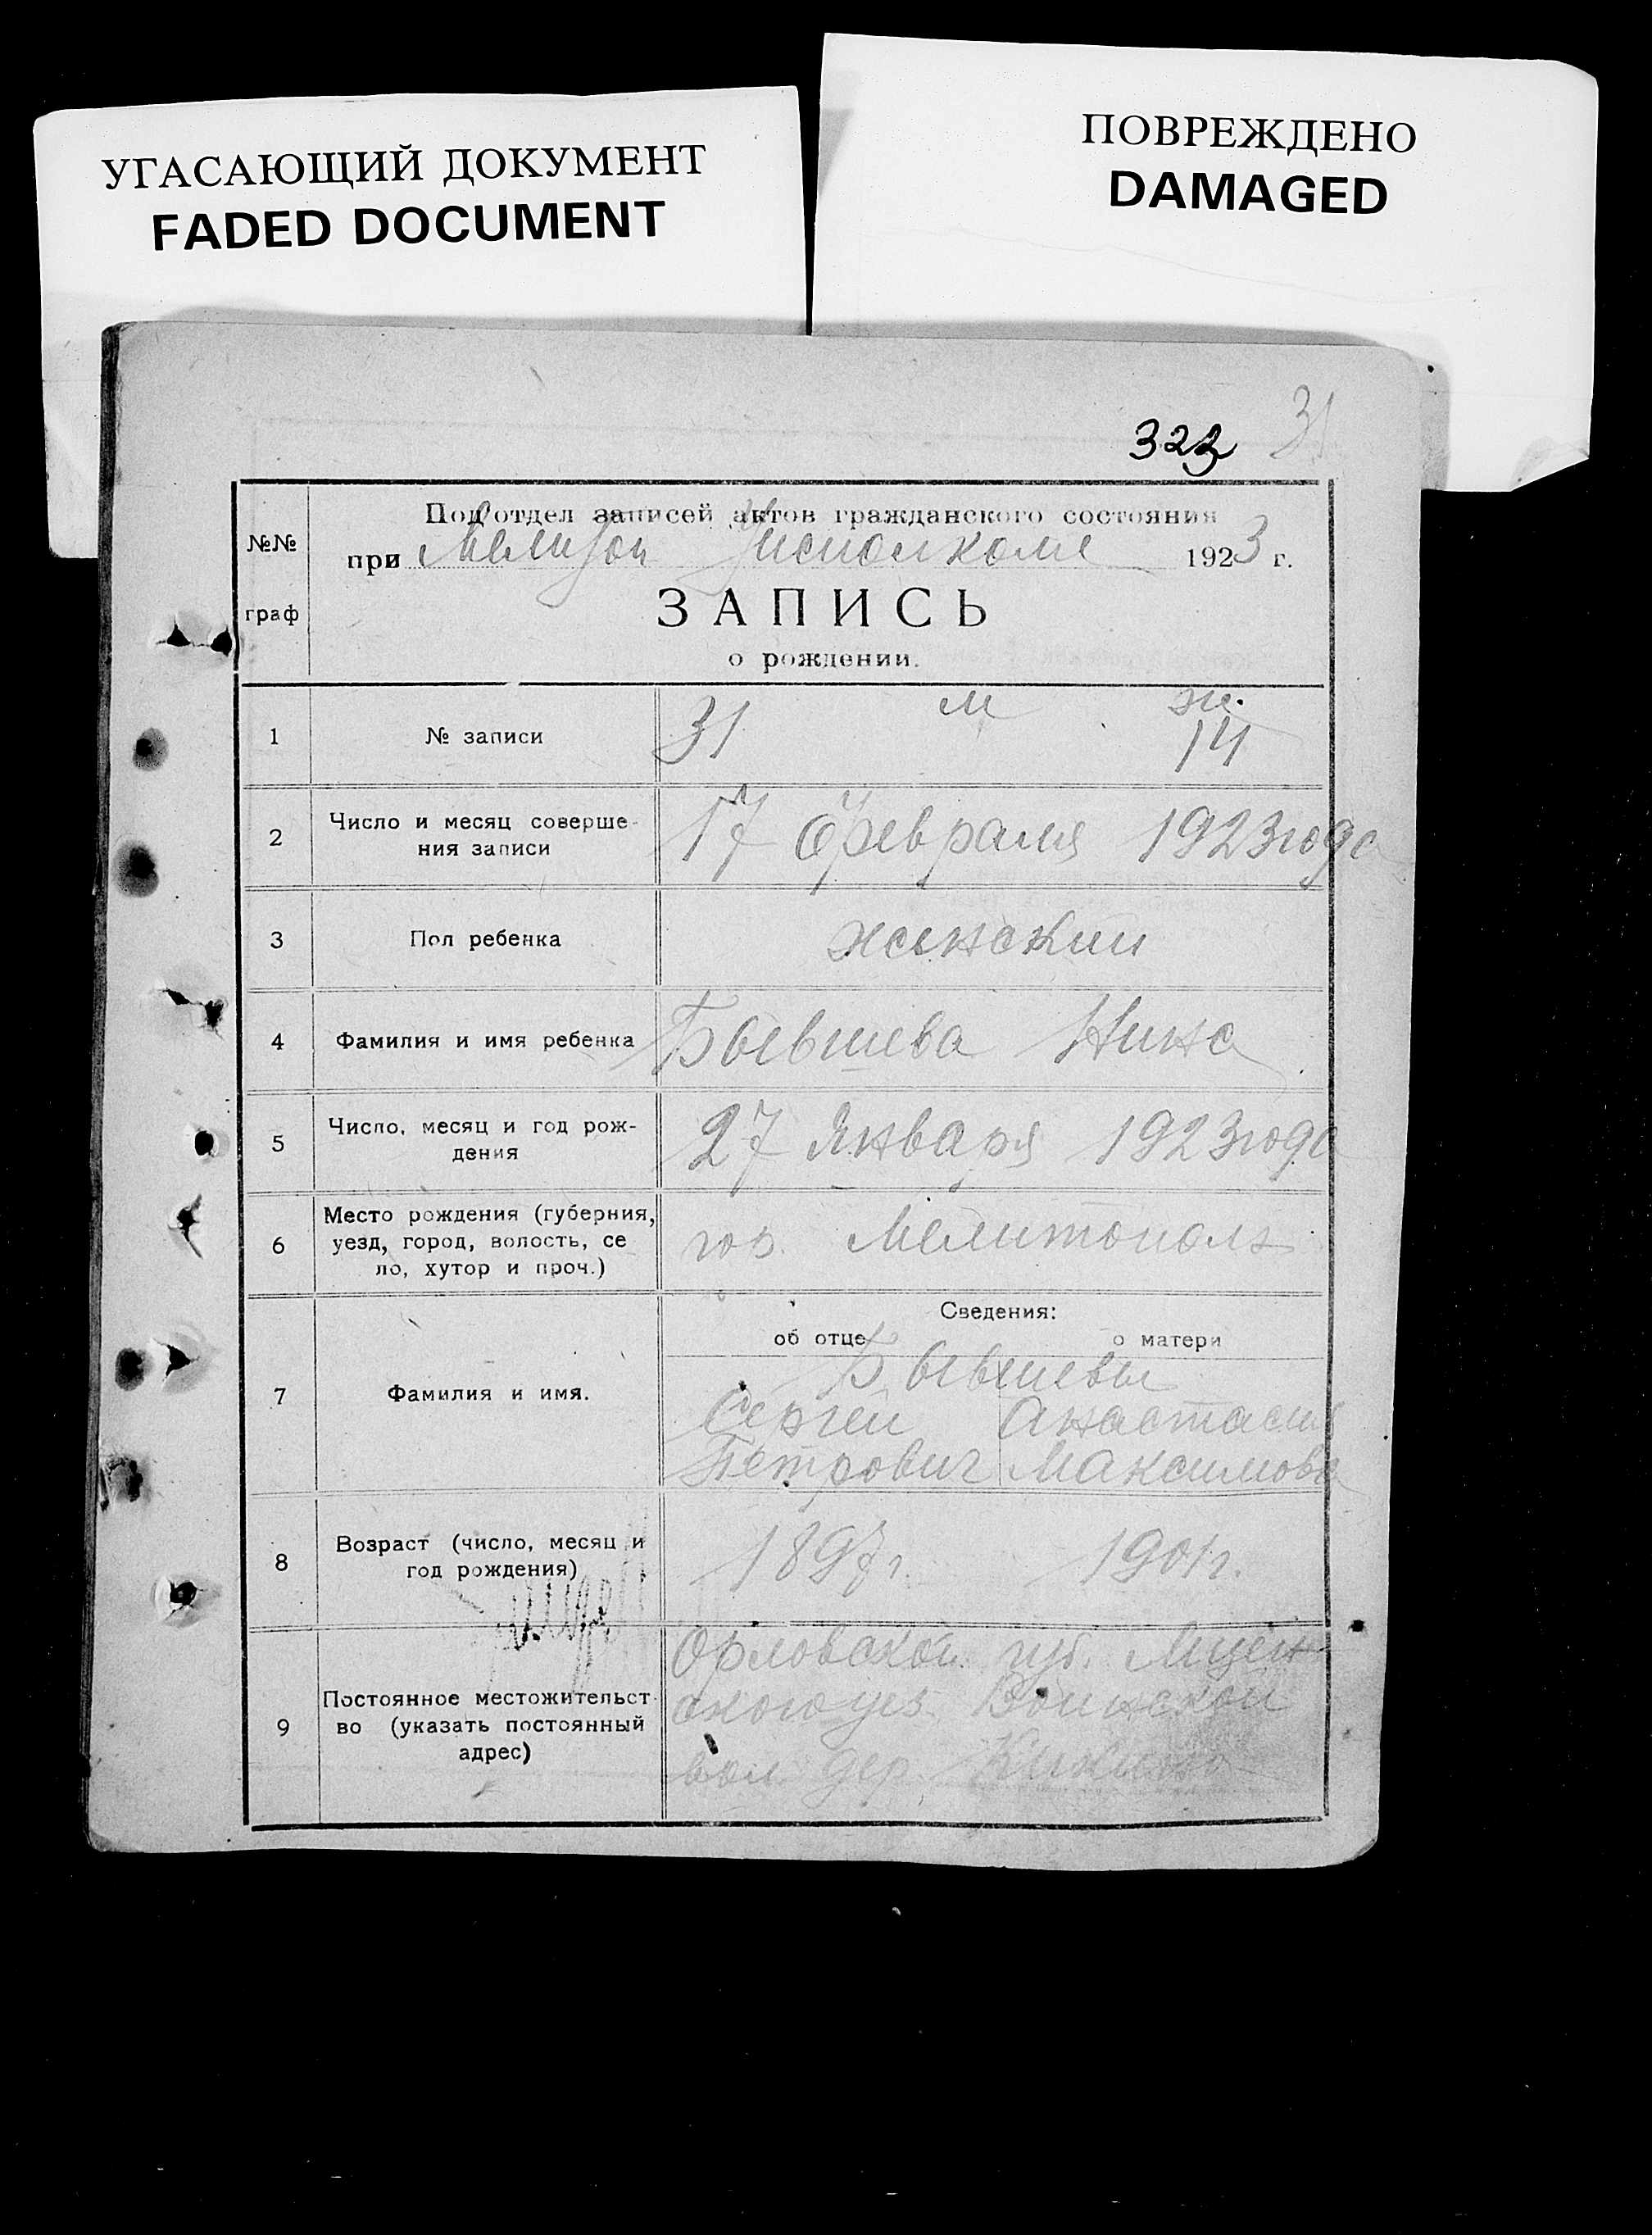 УГАСАЮЩИЙ ДОКУМЕНТ
FADED DOCUMENT
ПОВРЕЖДЕНО
DAMAGED
31
323
№№
граф
Подотдел записей актов гражданского состояния
при Исполкоме 1923 г.
ЗАПИСЬ
о рождении.
1 № записи 31 м ж. 14
2 Число и месяц соверше-
ния записи
17 Февраля 1923 года
3 Пол ребенка женский
4 Фамилия и имя ребенка Бывшева Нина
5 Число, месяц и год рож-
дения
27 Января 1923 года
6 Место рождения (губерния,
уезд, город, волость, се
ло, хутор и проч.)
гор. Мелитополь
Сведения:
об отце о матери
7 Фамилия и имя.
Бывшевы
Сергей Анастасия
Петрович Максимова
8 Возраст (число, месяц и
год рождения)
1897 г. 1901 г.
9 Постоянное местожительст
во (указать постоянный
адрес)
Орловской губ. Мцен
ского уез. Воинской
вол. дер.